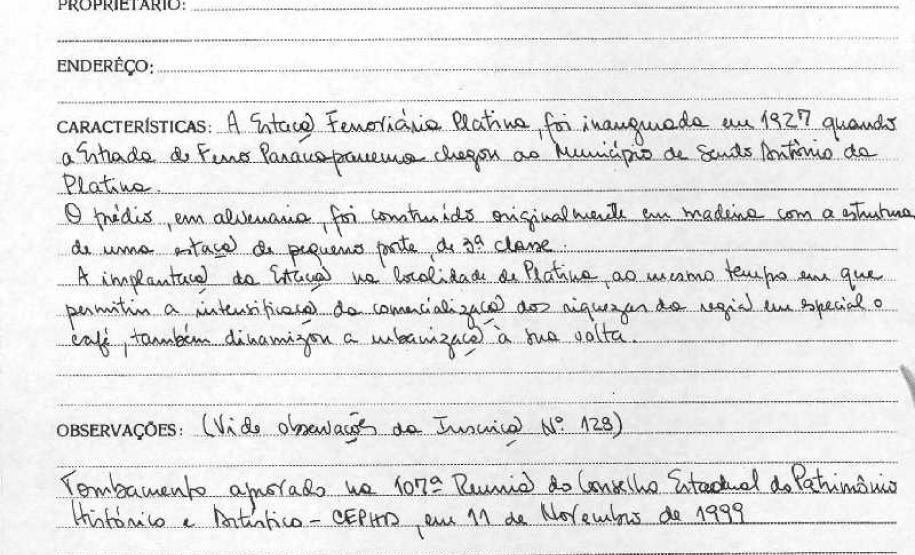 PROPRIETÁRIO:
ENDERÊÇO:
CARACTERÍSTICAS: A Estação Ferroviária Platina, foi inaugurada em 1927 quando
a Estrada de Ferro Paranapanema chegou ao Município de Santo Antônio da
Platina.
O prédio, em alvenaria, foi construído originalmente em madeira com a estrutura
de uma estação de pequeno porte, de 3ª classe.
A implantação da Estação na localidade de Platina, ao mesmo tempo em que
permitiu a intensificação da comercialização das riquezas da região em especial o
café, também dinamizou a urbanização à sua volta.
OBSERVAÇÕES: (Vide observações da Inscrição Nº 129)
Tombamento aprovado na 107ª Reunião do Conselho Estadual do Patrimônio
Histórico e Artístico - CEPHA, em 11 de Novembro de 1999